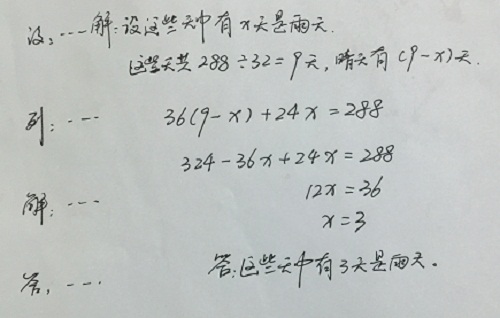 设:…… 解:设这些天中有x天是雨天.
这些天共288÷32=9天,晴天有(9-x)天.
列:…… 36(9-x)+24x=288
324-36x+24x=288
解:…… 12x=36
x=3
答:…… 答:这些天中有3天是雨天。